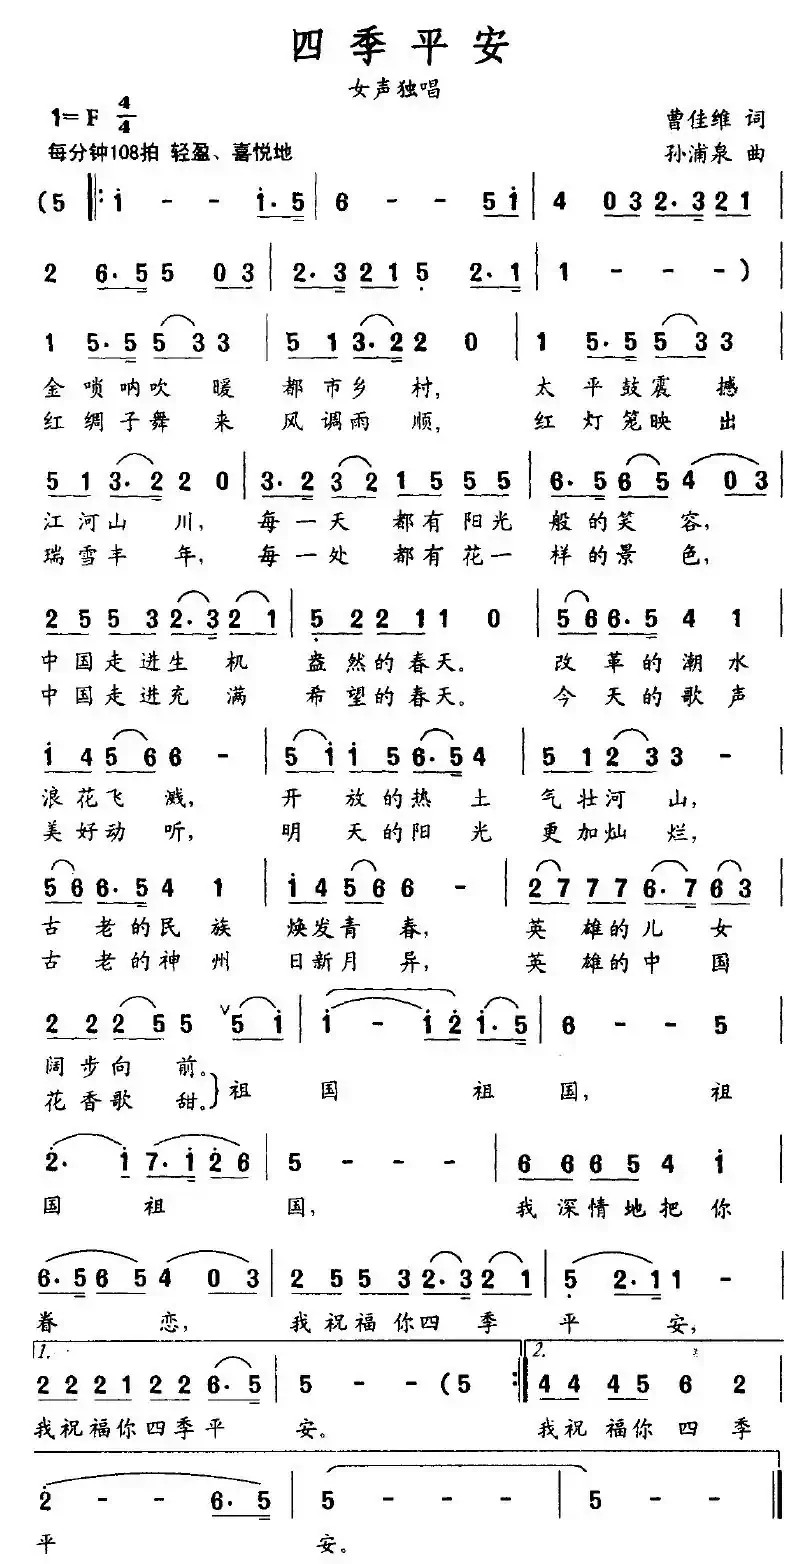 四季平安
女声独唱
1=F 4/4
曹佳维 词
每分钟108拍 轻盈、喜悦地
孙浦泉 曲
(5 ‖: i - - i. 5 | 6 - - 5 i | 4 0 3 2. 3 2 1 |
2 6. 5 5 0 3 | 2. 3 2 1 5 2. 1 | 1 - - - ) |
1 5. 5 5 3 3 | 5 1 3. 2 2 0 | 1 5. 5 5 3 3 |
金唢呐吹暖 都市乡村, 太平鼓震撼
红绸子舞来 风调雨顺, 红灯笼映出
5 1 3. 2 2 0 | 3. 2 3 2 1 5 5 5 | 6. 5 6 5 4 0 3 |
江河山川, 每一天都有阳光 般的笑容,
瑞雪丰年, 每一处都有花一 样的景色,
2 5 5 3 2. 3 2 1 | 5 2 2 1 1 0 | 5 6 6. 5 4 1 |
中国走进生机 盎然的春天。 改革的潮水
中国走进充满 希望的春天。 今天的歌声
i 4 5 6 6 - | 5 i i 5 6. 5 4 | 5 1 2 3 3 - |
浪花飞溅, 开放的热土 气壮河山,
美好动听, 明天的阳光 更加灿烂,
5 6 6. 5 4 1 | i 4 5 6 6 - | 2 7 7 7 6. 7 6 3 |
古老的民族 焕发青春, 英雄的儿女
古老的神州 日新月异, 英雄的中国
2 2 2 5 5 ∨ 5 i | i - i 2 i. 5 | 6 - - 5 |
阔步向前。
花香歌甜。 } 祖国 祖国, 祖
2. i 7. i 2 6 | 5 - - - | 6 6 6 5 4 i |
国祖 国, 我深情地把你
6. 5 6 5 4 0 3 | 2 5 5 3 2. 3 2 1 | 5 2. 1 1 - |
眷恋, 我祝福你四季 平安,
1. 2.
2 2 2 1 2 2 6. 5 | 5 - - (5 :‖ 4 4 4 5 6 2 |
我祝福你四季平 安。 我祝福你四季
2 - - 6. 5 | 5 - - - | 5 - - ‖
平 安。